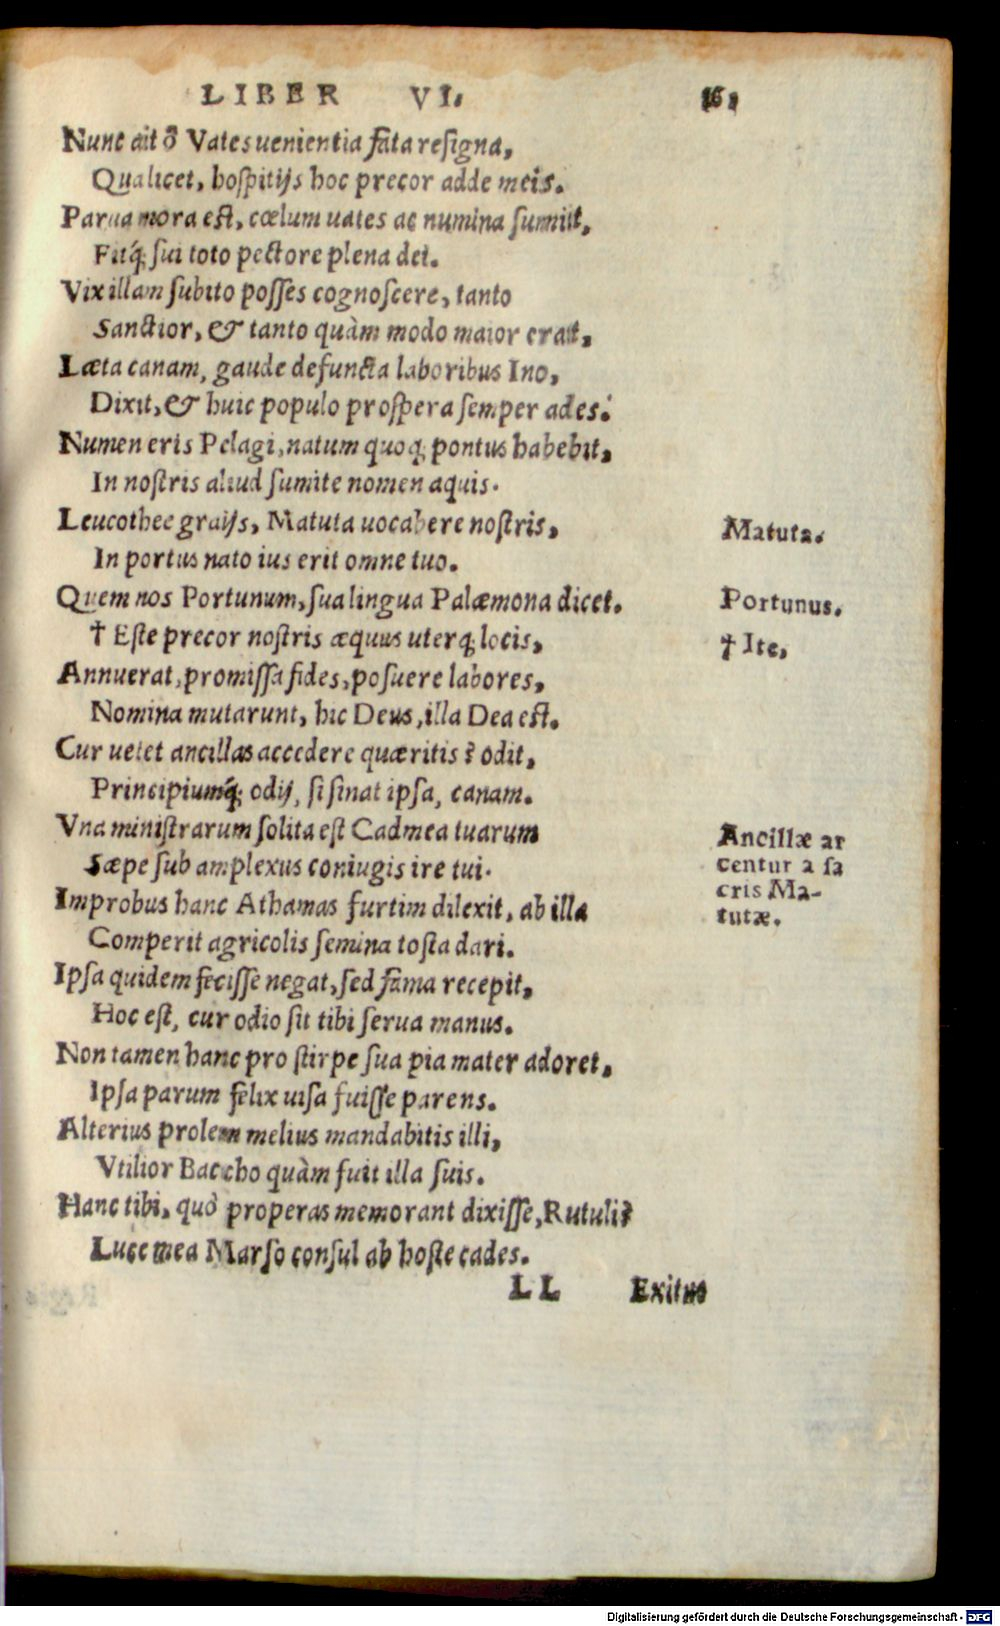 LIBER VI.
Nunc ait ô Vates uenientia fata resigna,
Qua licet, hospitijs hoc precor adde meis.
Parua mora est, cœlum uates ac numina sumit,
Fitq́; sui toto pectore plena dei.
Vix illam subito posses cognoscere, tanto
Sanctior, & tanto quàm modo maior erat,
Læta canam, gaude defuncta laboribus Ino,
Dixit, & huic populo prospera semper ades.
Numen eris Pelagi, natum quoq; pontus habebit,
In nostris aliud sumite nomen aquis.
Leucothee graijs, Matuta uocabere nostris,
Matuta.
In portus nato ius erit omne tuo.
Quem nos Portunum, sua lingua Palæmona dicet.
Portunus.
† Este precor nostris æquus uterq; locis,
† Ite,
Annuerat, promissa fides, posuere labores,
Nomina mutarunt, hic Deus, illa Dea est.
Cur uetet ancillas accedere quæritis? odit,
Principiumq́; odij, si sinat ipsa, canam.
Vna ministrarum solita est Cadmea tuarum
Sæpe sub amplexus coniugis ire tui.
Ancillæ ar
centur a sa
cris Ma-
tutæ.
Improbus hanc Athamas furtim dilexit, ab illa
Comperit agricolis semina tosta dari.
Ipsa quidem fecisse negat, sed fama recepit,
Hoc est, cur odio sit tibi serua manus.
Non tamen hanc pro stirpe sua pia mater adoret,
Ipsa parum felix uisa fuisse parens.
Alterius prolem melius mandabitis illi,
Vtilior Baccho quàm fuit illa suis.
Hanc tibi, quò properas memorant dixisse, Rutuli?
Luce mea Marso consul ab hoste cades.
LL Exitus
Digitalisierung gefördert durch die Deutsche Forschungsgemeinschaft - DFG